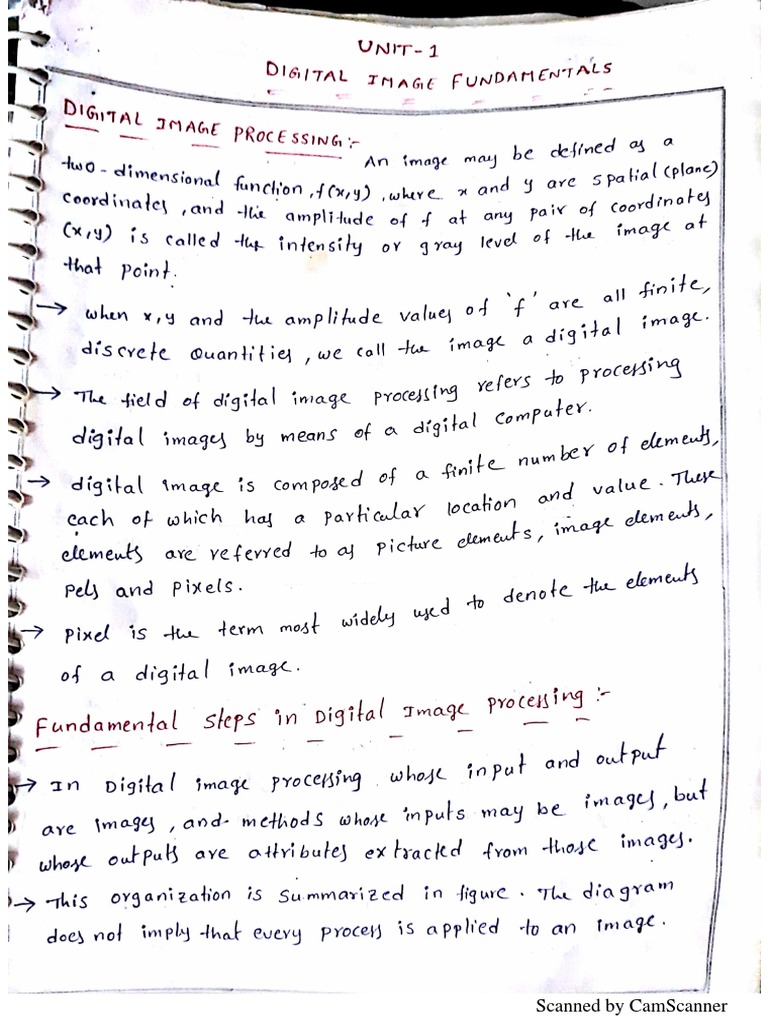 UNIT-1
DIGITAL IMAGE FUNDAMENTALS
DIGITAL IMAGE PROCESSING:-
An image may be defined as a
two-dimensional function, f(x,y), where x and y are spatial (plane)
coordinates, and the amplitude of f at any pair of coordinates
(x,y) is called the intensity or gray level of the image at
that point.
→ when x,y and the amplitude values of 'f' are all finite,
discrete quantities, we call the image a digital image.
→ The field of digital image processing refers to processing
digital images by means of a digital computer.
→ digital image is composed of a finite number of elements,
each of which has a particular location and value. These
elements are referred to as picture elements, image elements,
pels and pixels.
→ pixel is the term most widely used to denote the elements
of a digital image.
Fundamental Steps in Digital Image processing:-
→ In Digital image processing whose input and output
are images, and methods whose inputs may be images, but
whose outputs are attributes extracted from those images.
→ This organization is summarized in figure. The diagram
does not imply that every process is applied to an image.
Scanned by CamScanner